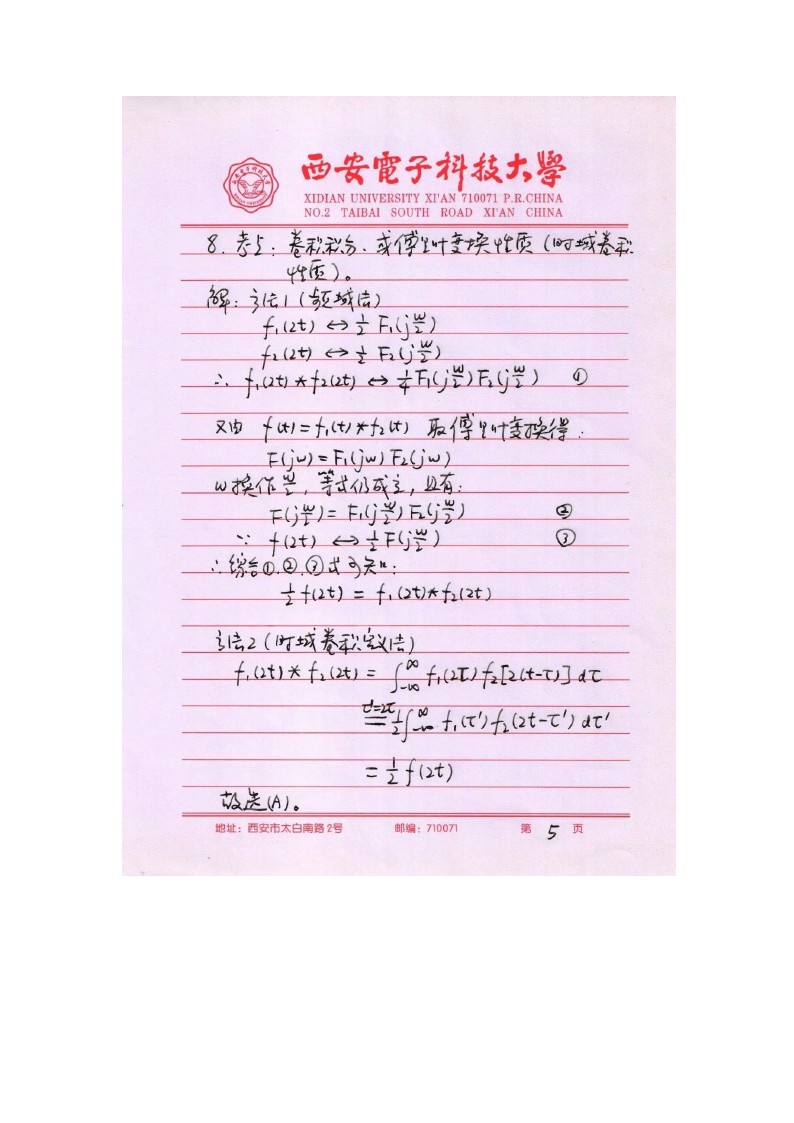 西安電子科技大學
XIDIAN UNIVERSITY XI'AN 710071 P.R.CHINA
NO.2 TAIBAI SOUTH ROAD XI'AN CHINA
8. 考点：卷积积分、或傅里叶变换性质（时域卷积
性质）。
解：方法1（频域法）
f₁(2t) ↔ ½ F₁(jω/2)
f₂(2t) ↔ ½ F₂(jω/2)
∴ f₁(2t) * f₂(2t) ↔ ¼ F₁(jω/2) F₂(jω/2) ①
又由 f(t) = f₁(t) * f₂(t) 取傅里叶变换得：
F(jω) = F₁(jω) F₂(jω)
ω换作ω/2，等式仍成立，且有：
F(jω/2) = F₁(jω/2) F₂(jω/2) ②
∵ f(2t) ↔ ½ F(jω/2) ③
∴ 综合①、②、③式可知：
½ f(2t) = f₁(2t) * f₂(2t)
方法2（时域卷积定义法）
f₁(2t) * f₂(2t) = ∫_{-∞}^{∞} f₁(2τ) f₂[2(t-τ)] dτ
τ'=2τ
= ½ ∫_{-∞}^{∞} f₁(τ') f₂(2t-τ') dτ'
= ½ f(2t)
故选(A)。
地址：西安市太白南路2号 邮编：710071 第 5 页